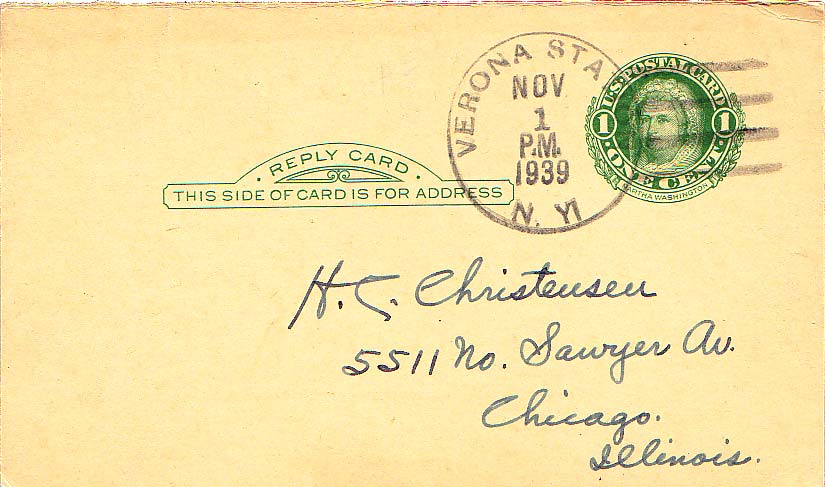 VERONA STA
NOV
1
P.M.
1939
N. Y.
U.S. POSTAL CARD
1 1
ONE CENT
MARTHA WASHINGTON
REPLY CARD
THIS SIDE OF CARD IS FOR ADDRESS
H. C. Christensen
5511 No. Sawyer Av.
Chicago.
Illinois.